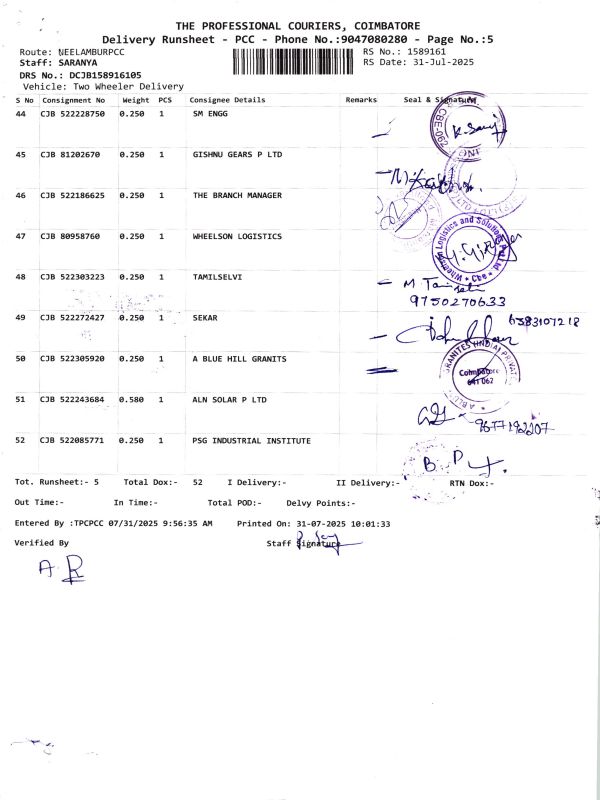 THE PROFESSIONAL COURIERS, COIMBATORE
Delivery Runsheet - PCC - Phone No.:9047080280 - Page No.:5
Route: NEELAMBURPCC RS No.: 1589161
Staff: SARANYA RS Date: 31-Jul-2025
DRS No.: DCJB158916105
Vehicle: Two Wheeler Delivery
S No Consignment No Weight PCS Consignee Details Remarks Seal & Signature
44 CJB 522228750 0.250 1 SM ENGG
CBE-062
45 CJB 81202670 0.250 1 GISHNU GEARS P LTD
46 CJB 522186625 0.250 1 THE BRANCH MANAGER
47 CJB 80958760 0.250 1 WHEELSON LOGISTICS
Wheelson Logistics and Solutions Pvt Ltd. * Cbe *
48 CJB 522303223 0.250 1 TAMILSELVI
9750270633
49 CJB 522272427 0.250 1 SEKAR
6383107218
50 CJB 522305920 0.250 1 A BLUE HILL GRANITS
Coimbatore
641 062
51 CJB 522243684 0.580 1 ALN SOLAR P LTD
9677192207
52 CJB 522085771 0.250 1 PSG INDUSTRIAL INSTITUTE
Tot. Runsheet:- 5 Total Dox:- 52 I Delivery:- II Delivery:- RTN Dox:-
Out Time:- In Time:- Total POD:- Delvy Points:-
Entered By :TPCPCC 07/31/2025 9:56:35 AM Printed On: 31-07-2025 10:01:33
Verified By Staff Signature
A.R